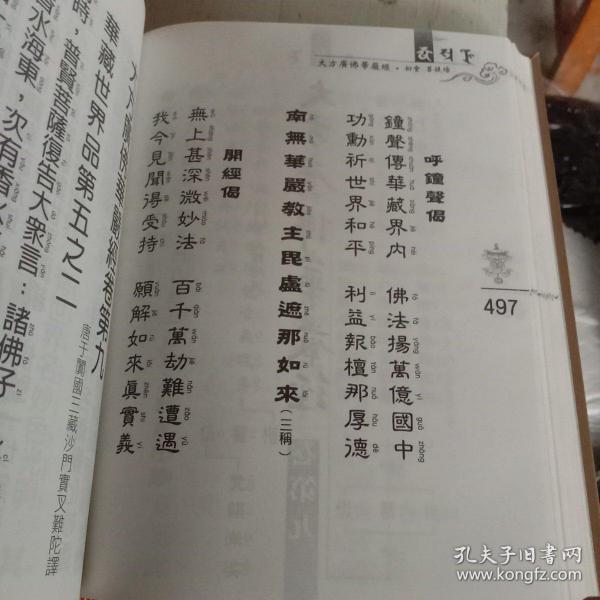 大方廣佛華嚴經・初會 菩提場
497
呼鐘聲偈
鐘聲傳華藏界內 佛法揚萬億國中
功勳祈世界和平 利益報檀那厚德
南無華嚴教主毘盧遮那如來(三稱)
開經偈
無上甚深微妙法 百千萬劫難遭遇
我今見聞得受持 願解如來真實義
大方廣佛華嚴經卷第九
唐于闐國三藏沙門實叉難陀譯
華藏世界品第五之二
時，普賢菩薩復告大眾言：諸佛子
香水海東，次有香水
孔夫子旧書网
www.kongfz.com